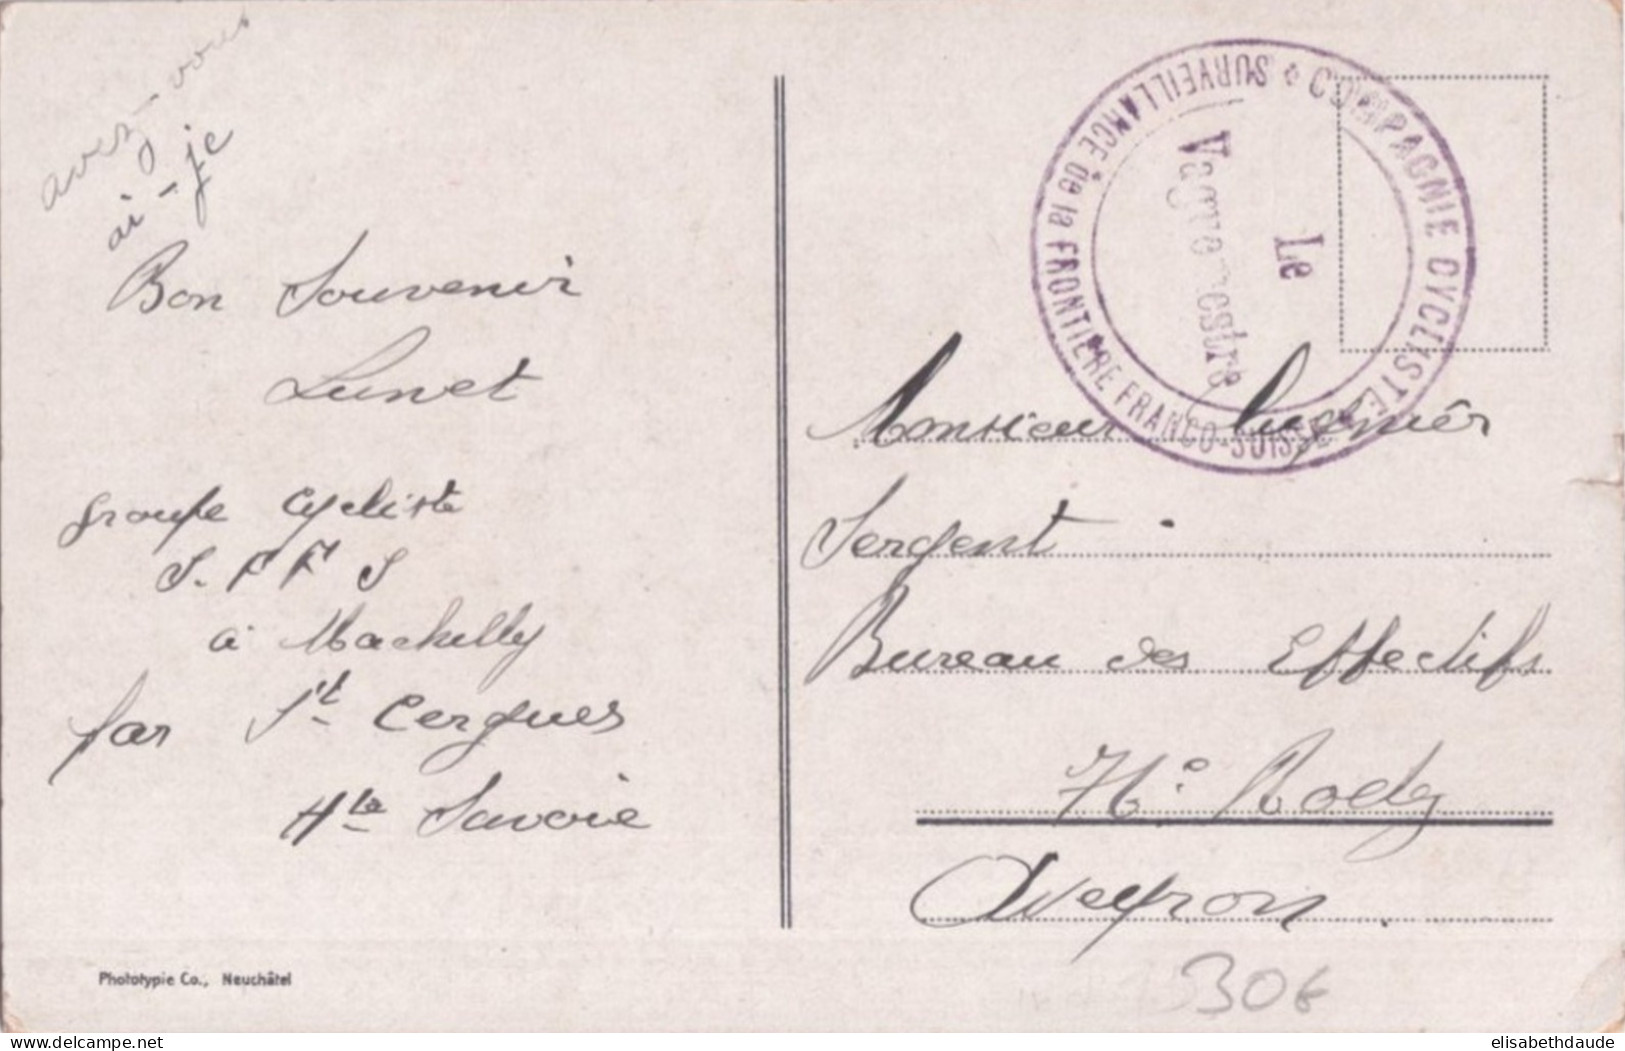 avez-vous
ai-je
Bon Souvenir
Lunet
groupe cycliste
S. F F S
à Machilly
par St Cergues
Hte Savoie
Phototypie Co., Neuchâtel
COMPAGNIE CYCLISTE
SURVEILLANCE de la FRONTIÈRE FRANCO-SUISSE
Le
Vaguemestre
Monsieur
Sergent
Bureau des Effectifs
Rodez
Aveyron
30€
delcampe.net
elisabethdaude